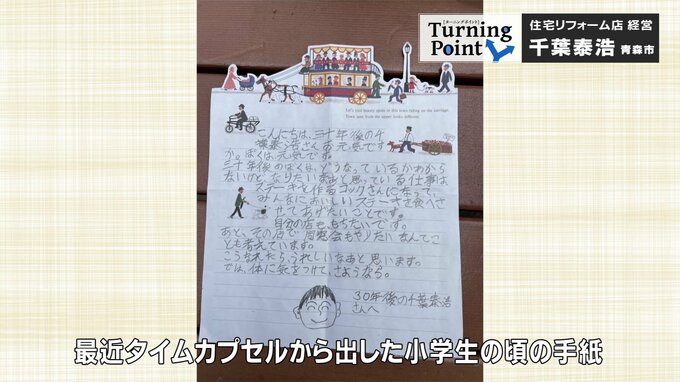 [ターニングポイント]
Turning
Point
住宅リフォーム店 経営
千葉泰浩 青森市
Let's visit beauty spots in this town riding on the carriage.
Town seen from the upper looks different.
こんにちは、三十年後の千
葉泰浩さんお元気です
か。ぼくは、元気です。
三十年後のぼくは、どうなっているかわから
ないけど、なりたいなあと思っている仕事は、
ステーキを作るコックさんになって、
みんなにおいしいステーキを食べさ
せてあげたいことです。
自分の店ももちたいです。
あと、その店で同窓会もやりたいなんてこ
とも考えています。
こうなれたら、うれしいなあと思います。
では、体に気をつけて、さようなら。
30年後の千葉泰浩
さんへ
最近タイムカプセルから出した小学生の頃の手紙